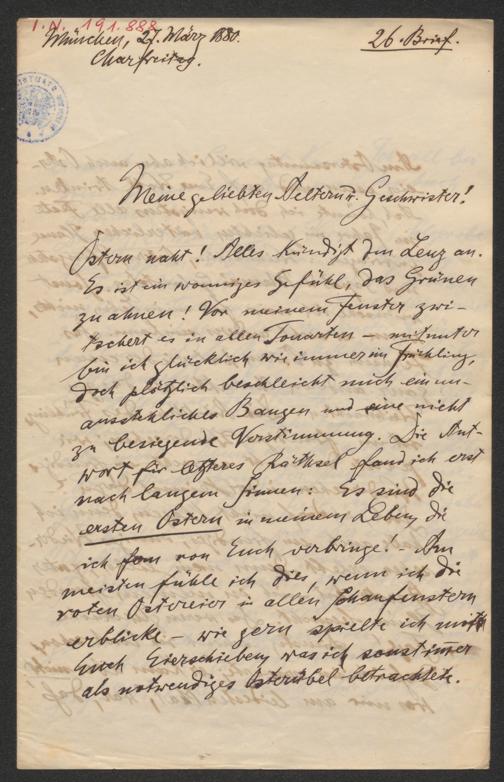 I.N. 191.888
München, 27. März 1880.
26. Brief.
Charfreitag.
Meine geliebten Aeltern u. Geschwister!
Ostern naht! Alles kündigt den Lenz an.
Es ist ein wonniges Gefühl, das Grünen
zu ahnen! Vor meinem Fenster zwi-
tschert es in allen Tonarten – mitunter
bin ich glücklich wie immer im Frühling,
doch plötzlich beschleicht mich ein un-
ausstehliches Bangen und eine nicht
zu besiegende Verstimmung. Die Ant-
wort für letzteres Räthsel fand ich erst
nach langem Sinnen: Es sind die
ersten Ostern in meinem Leben, die
ich fern von Euch verbringe! – Am
meisten fühle ich dies, wenn ich die
roten Ostereier in allen Schaufenstern
erblicke – wie gern spielte ich mit
Euch Eierschieben, was ich sonst immer
als notwendiges Osterübel betrachtete.